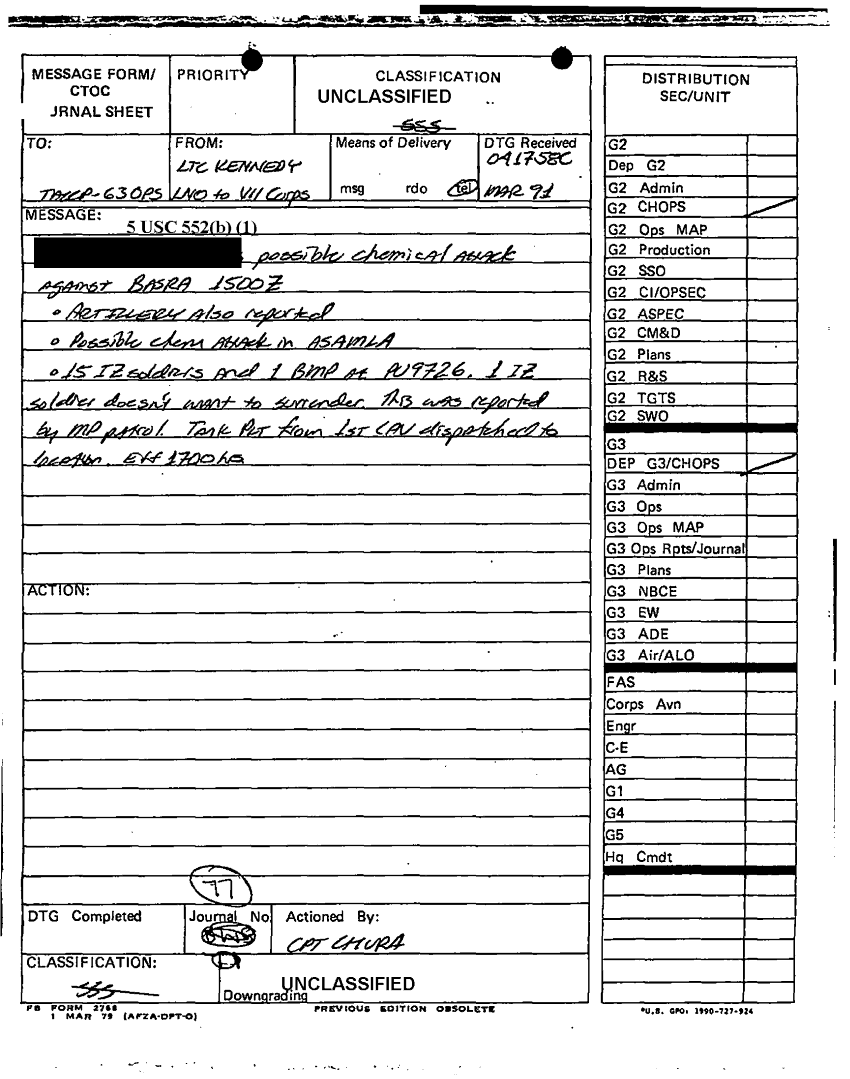 MESSAGE FORM/
CTOC
JRNAL SHEET
PRIORITY
CLASSIFICATION
UNCLASSIFIED
SSS
TO:
TACCP-G3OPS
FROM:
LTC KENNEDY
LNO to VII Corps
Means of Delivery
msg rdo tel
DTG Received
041758C
MAR 91
MESSAGE:
5 USC 552(b) (1)
possible chemical attack
against BASRA 1500Z
• ARTILLERY also reported
• Possible chem attack in ASAMLA
• 15 IZ soldiers and 1 BMP at PU9726. 1 IZ
soldier doesn't want to surrender. This was reported
by MP patrol. Tank PLT from 1ST CAV dispatched to
location. Eff 1700 hrs
ACTION:
77
DTG Completed
Journal No
Actioned By:
CPT CHURA
CLASSIFICATION:
SSS
UNCLASSIFIED
Downgrading
FB FORM 2768
1 MAR 79 (AFZA-DPT-O)
PREVIOUS EDITION OBSOLETE
DISTRIBUTION
SEC/UNIT
G2
Dep G2
G2 Admin
G2 CHOPS
G2 Ops MAP
G2 Production
G2 SSO
G2 CI/OPSEC
G2 ASPEC
G2 CM&D
G2 Plans
G2 R&S
G2 TGTS
G2 SWO
G3
DEP G3/CHOPS
G3 Admin
G3 Ops
G3 Ops MAP
G3 Ops Rpts/Journal
G3 Plans
G3 NBCE
G3 EW
G3 ADE
G3 Air/ALO
FAS
Corps Avn
Engr
C-E
AG
G1
G4
G5
Hq Cmdt
*U.S. GPO: 1990-727-924